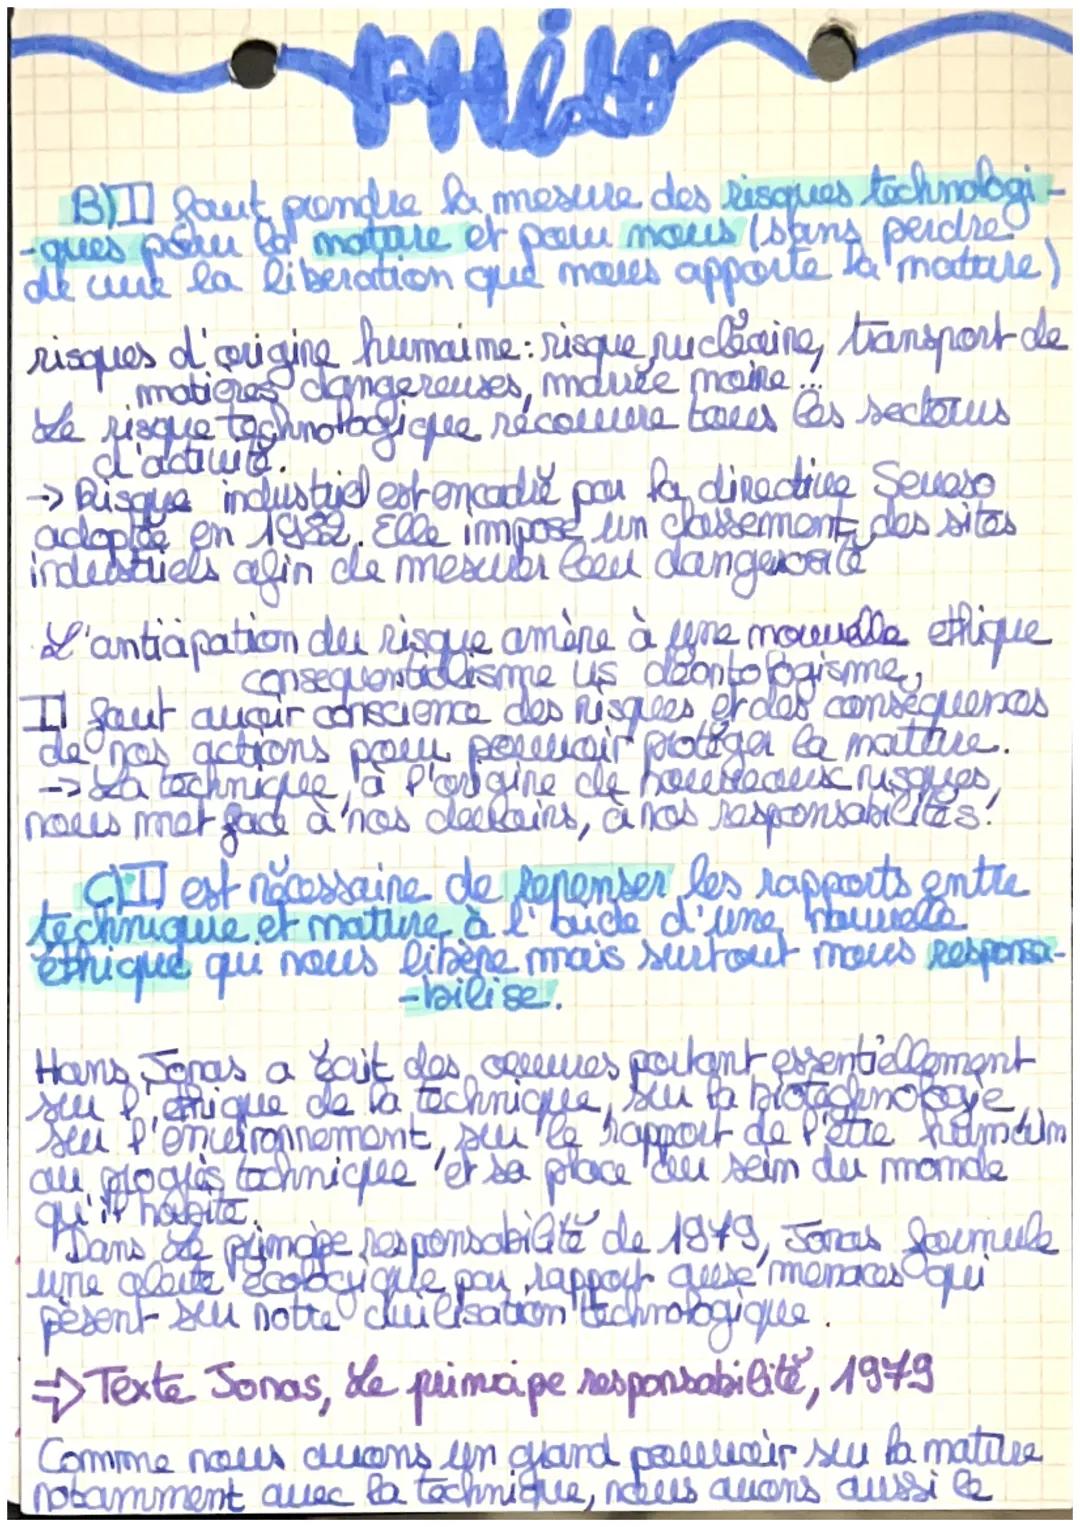 PHiLO
B) Il faut prendre la mesure des risques technologi-
-ques pour la nature et pour nous (sans perdre
de vue la libération que nous apporte la nature)
risques d'origine humaine : risque nucléaire, transport de
matières dangereuses, marée noire...
Le risque technologique recouvre tous les secteurs
d'activité.
-> Risque industriel est encadré par la directive Seveso
adoptée en 1982. Elle impose un classement des sites
industriels afin de mesurer leur dangerosité
L'anticipation du risque amène à une nouvelle ethique
consequentialisme vs déontologisme,
Il faut avoir conscience des risques et des conséquences
de nos actions pour pouvoir protéger la nature.
-> La technique, à l'origine de nouveaux risques,
nous met face à nos devoirs, à nos responsabilités.
C) Il est nécessaire de repenser les rapports entre
technique et nature à l'aide d'une nouvelle
éthique qui nous libère mais surtout nous responsa-
-bilise.
Hans Jonas a écrit des oeuvres portant essentiellement
sur l'éthique de la technique, sur la biotechnologie,
sur l'environnement, sur le rapport de l'être humain
au progrès technique et sa place au sein du monde
qu'il habite.
Dans Le principe responsabilité de 1979, Jonas formule
une alerte écologique par rapport aux menaces qui
pèsent sur notre civilisation technologique.
=> Texte Jonas, Le principe responsabilité, 1979
Comme nous avons un grand pouvoir sur la nature
notamment avec la technique, nous avons aussi le